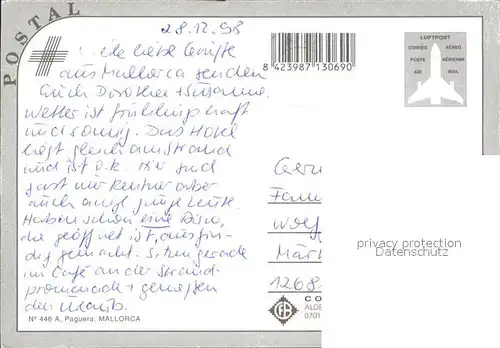 POSTAL
28.12.98
Viele liebe Grüße
aus Mallorca senden
Euch Dorothee + Susanne.
Wetter ist frühlingshaft
und sonnig. Das Hotel
liegt gleich am Strand
und ist o.k. Hier sind
fast nur Rentner aber
auch einige junge Leute.
Haben schon eine Disco,
die geöffnet ist, ausfin-
dig gemacht. Sitzen gerade
im Café an der Strand-
promenade + genießen
den Urlaub.
Nº 446 A, Paguera, MALLORCA
8 423987 130690
LUFTPOST
CORREO AÉREO
POSTE AÉRIENNE
AIR MAIL
Fam
Wolf
Märk
1268
CO
ALDE
0701
privacy protection
Datenschutz